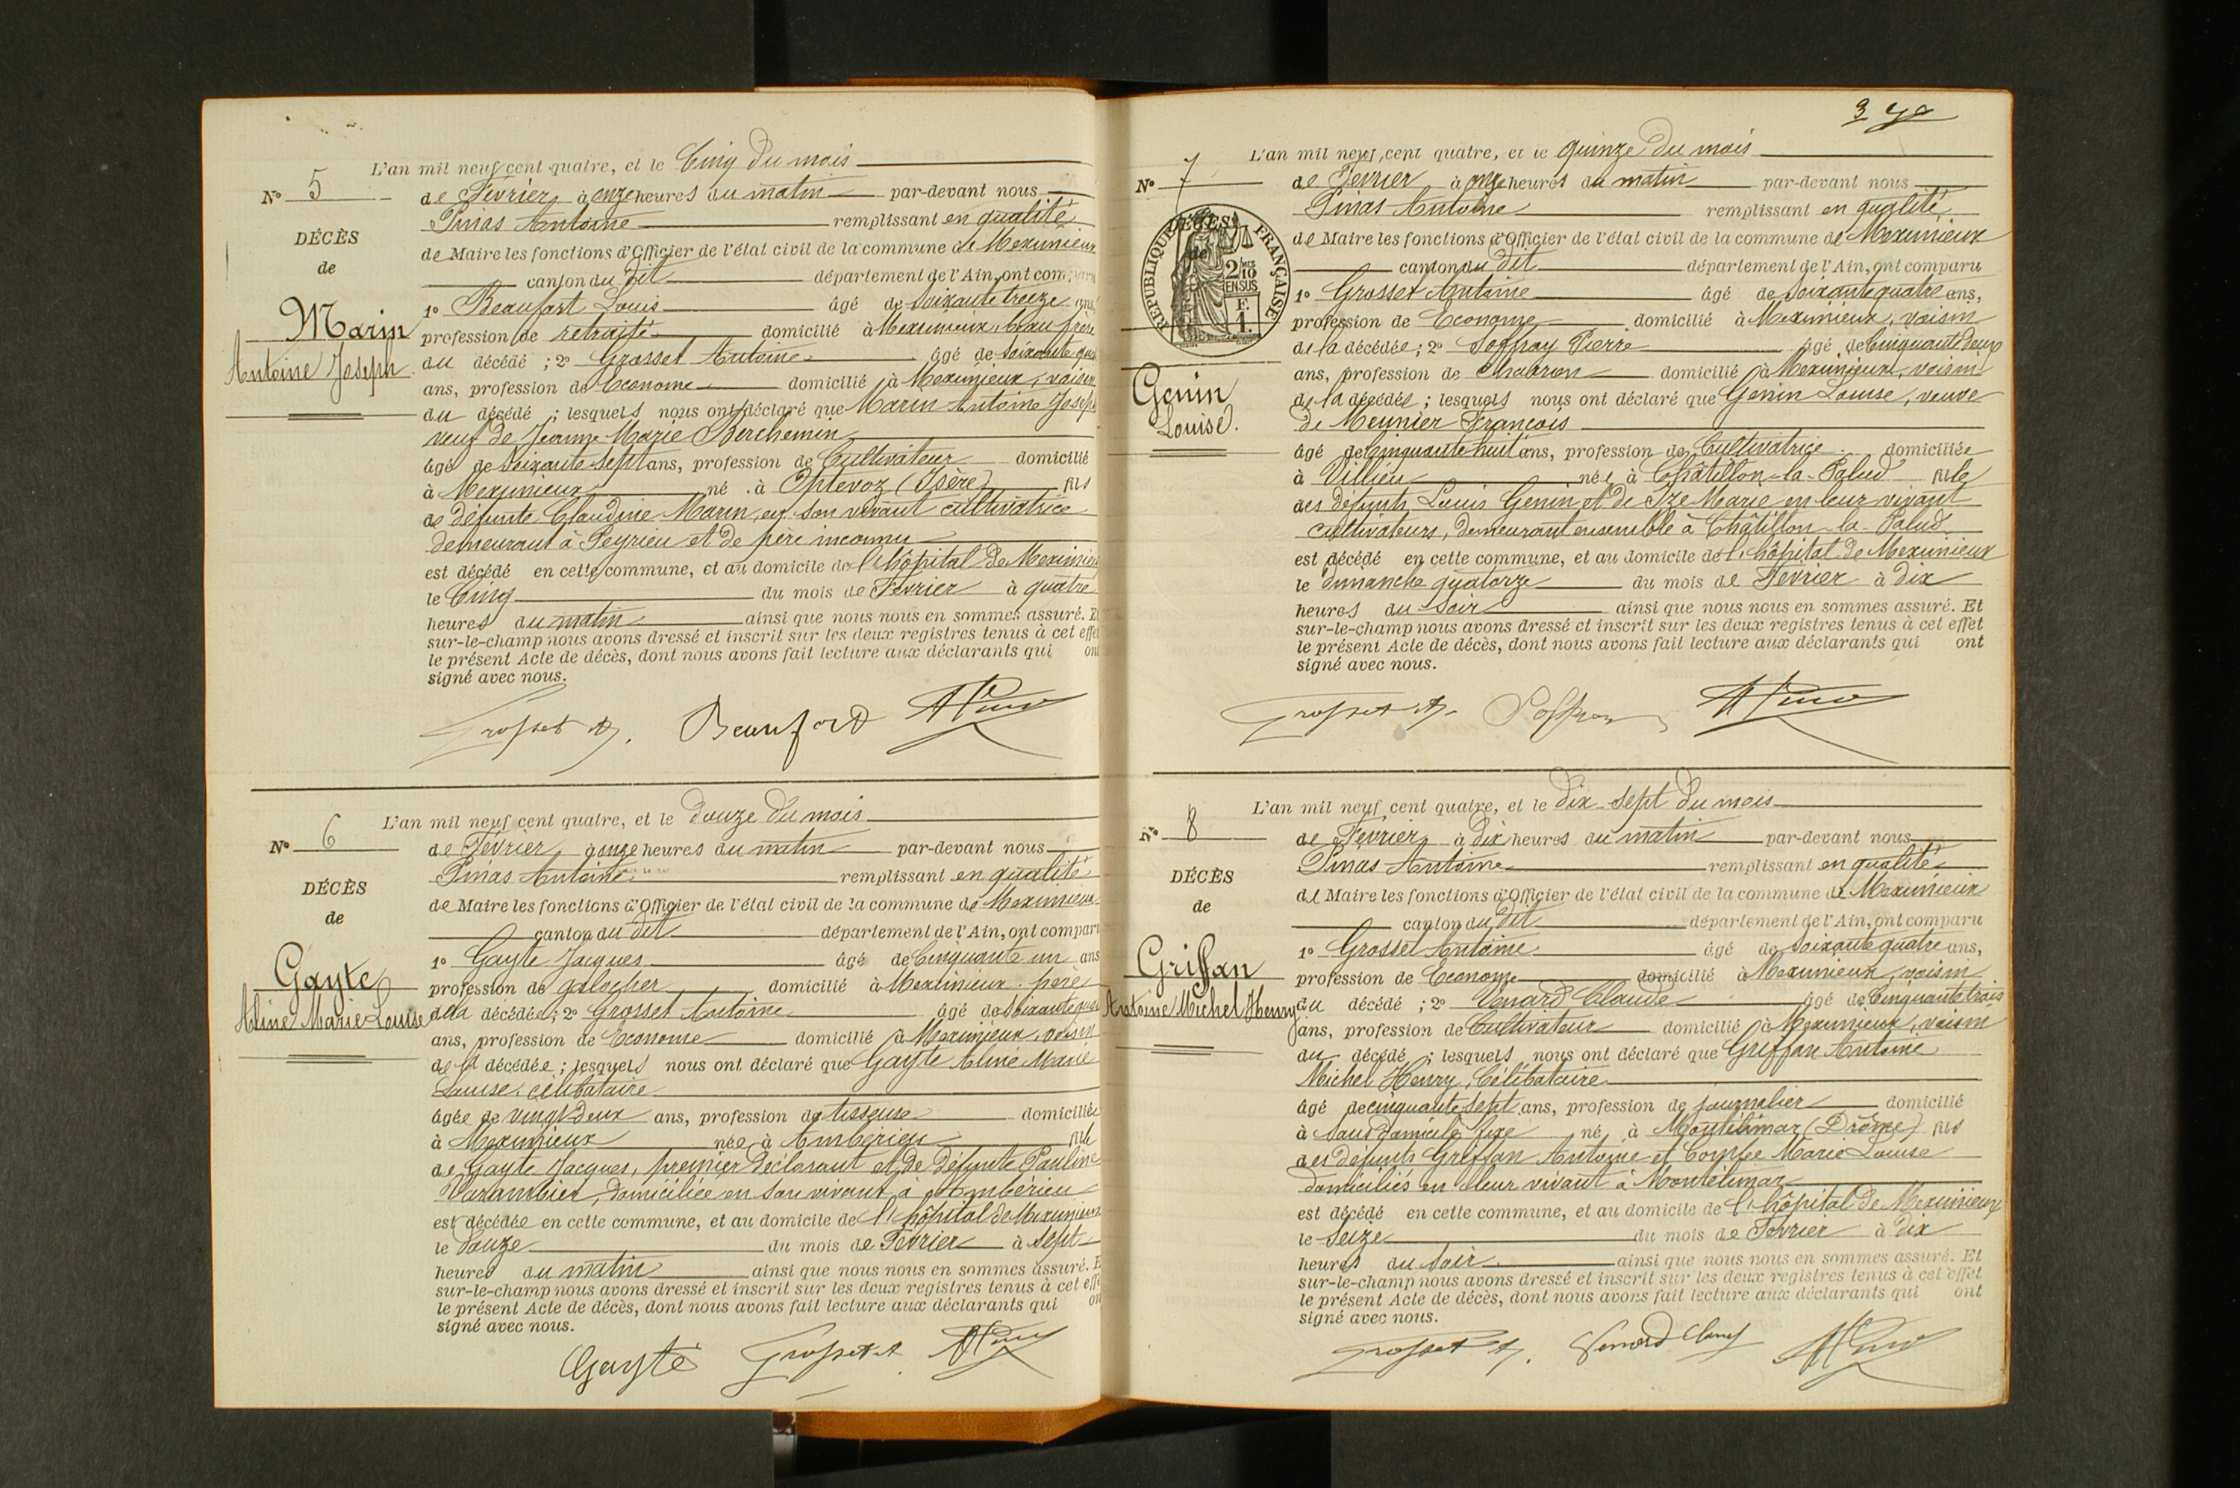 L'an mil neuf cent quatre, et le Cinq du mois
No 5
de Février à onze heures du matin par-devant nous
Pinas Antoine remplissant en qualité
DÉCÈS
de Maire les fonctions d'Officier de l'état civil de la commune de Meximieux
de
canton du dit département de l'Ain, ont comparu
1o Beaufort Louis âgé de soixante treize ans,
Marin
profession de retraité domicilié à Meximieux, beau frère
Antoine Joseph
du décédé ; 2o Grosset Antoine âgé de soixante
ans, profession de Econome domicilié à Meximieux, voisin
du décédé ; lesquels nous ont déclaré que Marin Antoine Joseph
veuf de Jeanne Marie Berchemin
âgé de soixante sept ans, profession de Cultivateur domicilié
à Meximieux né à Optevoz (Isère) fils
de défunte Claudine Marin, en son vivant cultivatrice
demeurant à Peyrieu et de père inconnu
est décédé en cette commune, et au domicile de l'hôpital de Meximieux
le Cinq du mois de Février à quatre
heures du matin ainsi que nous nous en sommes assuré. Et
sur-le-champ nous avons dressé et inscrit sur les deux registres tenus à cet effet
le présent Acte de décès, dont nous avons fait lecture aux déclarants qui ont
signé avec nous.
Grosset A. Beaufort APinas
L'an mil neuf cent quatre, et le douze du mois
No 6
de Février à onze heures du matin par-devant nous
Pinas Antoine remplissant en qualité
DÉCÈS
de Maire les fonctions d'Officier de l'état civil de la commune de Meximieux
de
canton du dit département de l'Ain, ont comparu
1o Gayte Jacques âgé de Cinquante un ans
Gayte
profession de galocher domicilié à Meximieux, père
Aline Marie-Louise
de la décédée ; 2o Grosset Antoine âgé de soixante
ans, profession de Econome domicilié à Meximieux, voisin
de la décédée ; lesquels nous ont déclaré que Gayte Aline Marie
Louise, célibataire
âgée de vingt deux ans, profession de tisseuse domiciliée
à Meximieux née à Ambérieu fille
de Gayte Jacques, premier déclarant et de défunte Pauline
Varambier, domiciliée en son vivant à Ambérieu
est décédée en cette commune, et au domicile de l'hôpital de Meximieux
le douze du mois de Février à sept
heures du matin ainsi que nous nous en sommes assuré. Et
sur-le-champ nous avons dressé et inscrit sur les deux registres tenus à cet effet
le présent Acte de décès, dont nous avons fait lecture aux déclarants qui ont
signé avec nous.
Gayte Grosset A APinas
3
L'an mil neuf cent quatre, et le quinze du mois
No 7
de Février à onze heures du matin par-devant nous
Pinas Antoine remplissant en qualité
DÉCÈS
de
RÉPUBLIQUE FRANÇAISE
2/10 EN SUS
F. 1.
de Maire les fonctions d'Officier de l'état civil de la commune de Meximieux
canton du dit département de l'Ain, ont comparu
1o Grosset Antoine âgé de soixante quatre ans,
profession de Econome domicilié à Meximieux, voisin
de la décédée ; 2o Soffray Pierre âgé de Cinquante deux
ans, profession de Charron domicilié à Meximieux, voisin
Genin
Louise.
de la décédée ; lesquels nous ont déclaré que Genin Louise, veuve
de Meunier François
âgé de Cinquante huit ans, profession de Cultivatrice domiciliée
à Villieu née à Châtillon-la-Palud fille
des défunts Louis Genin et de Ize Marie en leur vivant
cultivateurs, demeurant ensemble à Châtillon-la-Palud
est décédé en cette commune, et au domicile de l'hôpital de Meximieux
le dimanche quatorze du mois de Février à dix
heures du soir ainsi que nous nous en sommes assuré. Et
sur-le-champ nous avons dressé et inscrit sur les deux registres tenus à cet effet
le présent Acte de décès, dont nous avons fait lecture aux déclarants qui ont
signé avec nous.
Grosset A. Soffray APinas
L'an mil neuf cent quatre, et le dix-sept du mois
No 8
de Février à dix heures du matin par-devant nous
Pinas Antoine remplissant en qualité
DÉCÈS
de Maire les fonctions d'Officier de l'état civil de la commune de Meximieux
de
canton du dit département de l'Ain, ont comparu
1o Grosset Antoine âgé de soixante quatre ans,
Griffan
profession de Econome domicilié à Meximieux, voisin
Antoine Michel Henry
du décédé ; 2o Venard Claude âgé de Cinquante trois
ans, profession de Cultivateur domicilié à Meximieux, voisin
du décédé ; lesquels nous ont déclaré que Greffan Antoine
Michel Henry, Célibataire
âgé de cinquante sept ans, profession de journalier domicilié
à Sans domicile fixe né à Montélimar (Drôme) fils
des défunts Greffan Antoine et Marie Louise
domiciliés en leur vivant à Montélimar
est décédé en cette commune, et au domicile de l'hôpital de Meximieux
le Seize du mois de Février à dix
heures du soir ainsi que nous nous en sommes assuré. Et
sur-le-champ nous avons dressé et inscrit sur les deux registres tenus à cet effet
le présent Acte de décès, dont nous avons fait lecture aux déclarants qui ont
signé avec nous.
Grosset A. Venard Claude APinas